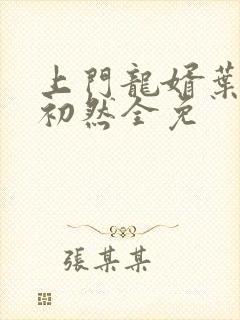 上門龍婿葉
初然全免
張某某